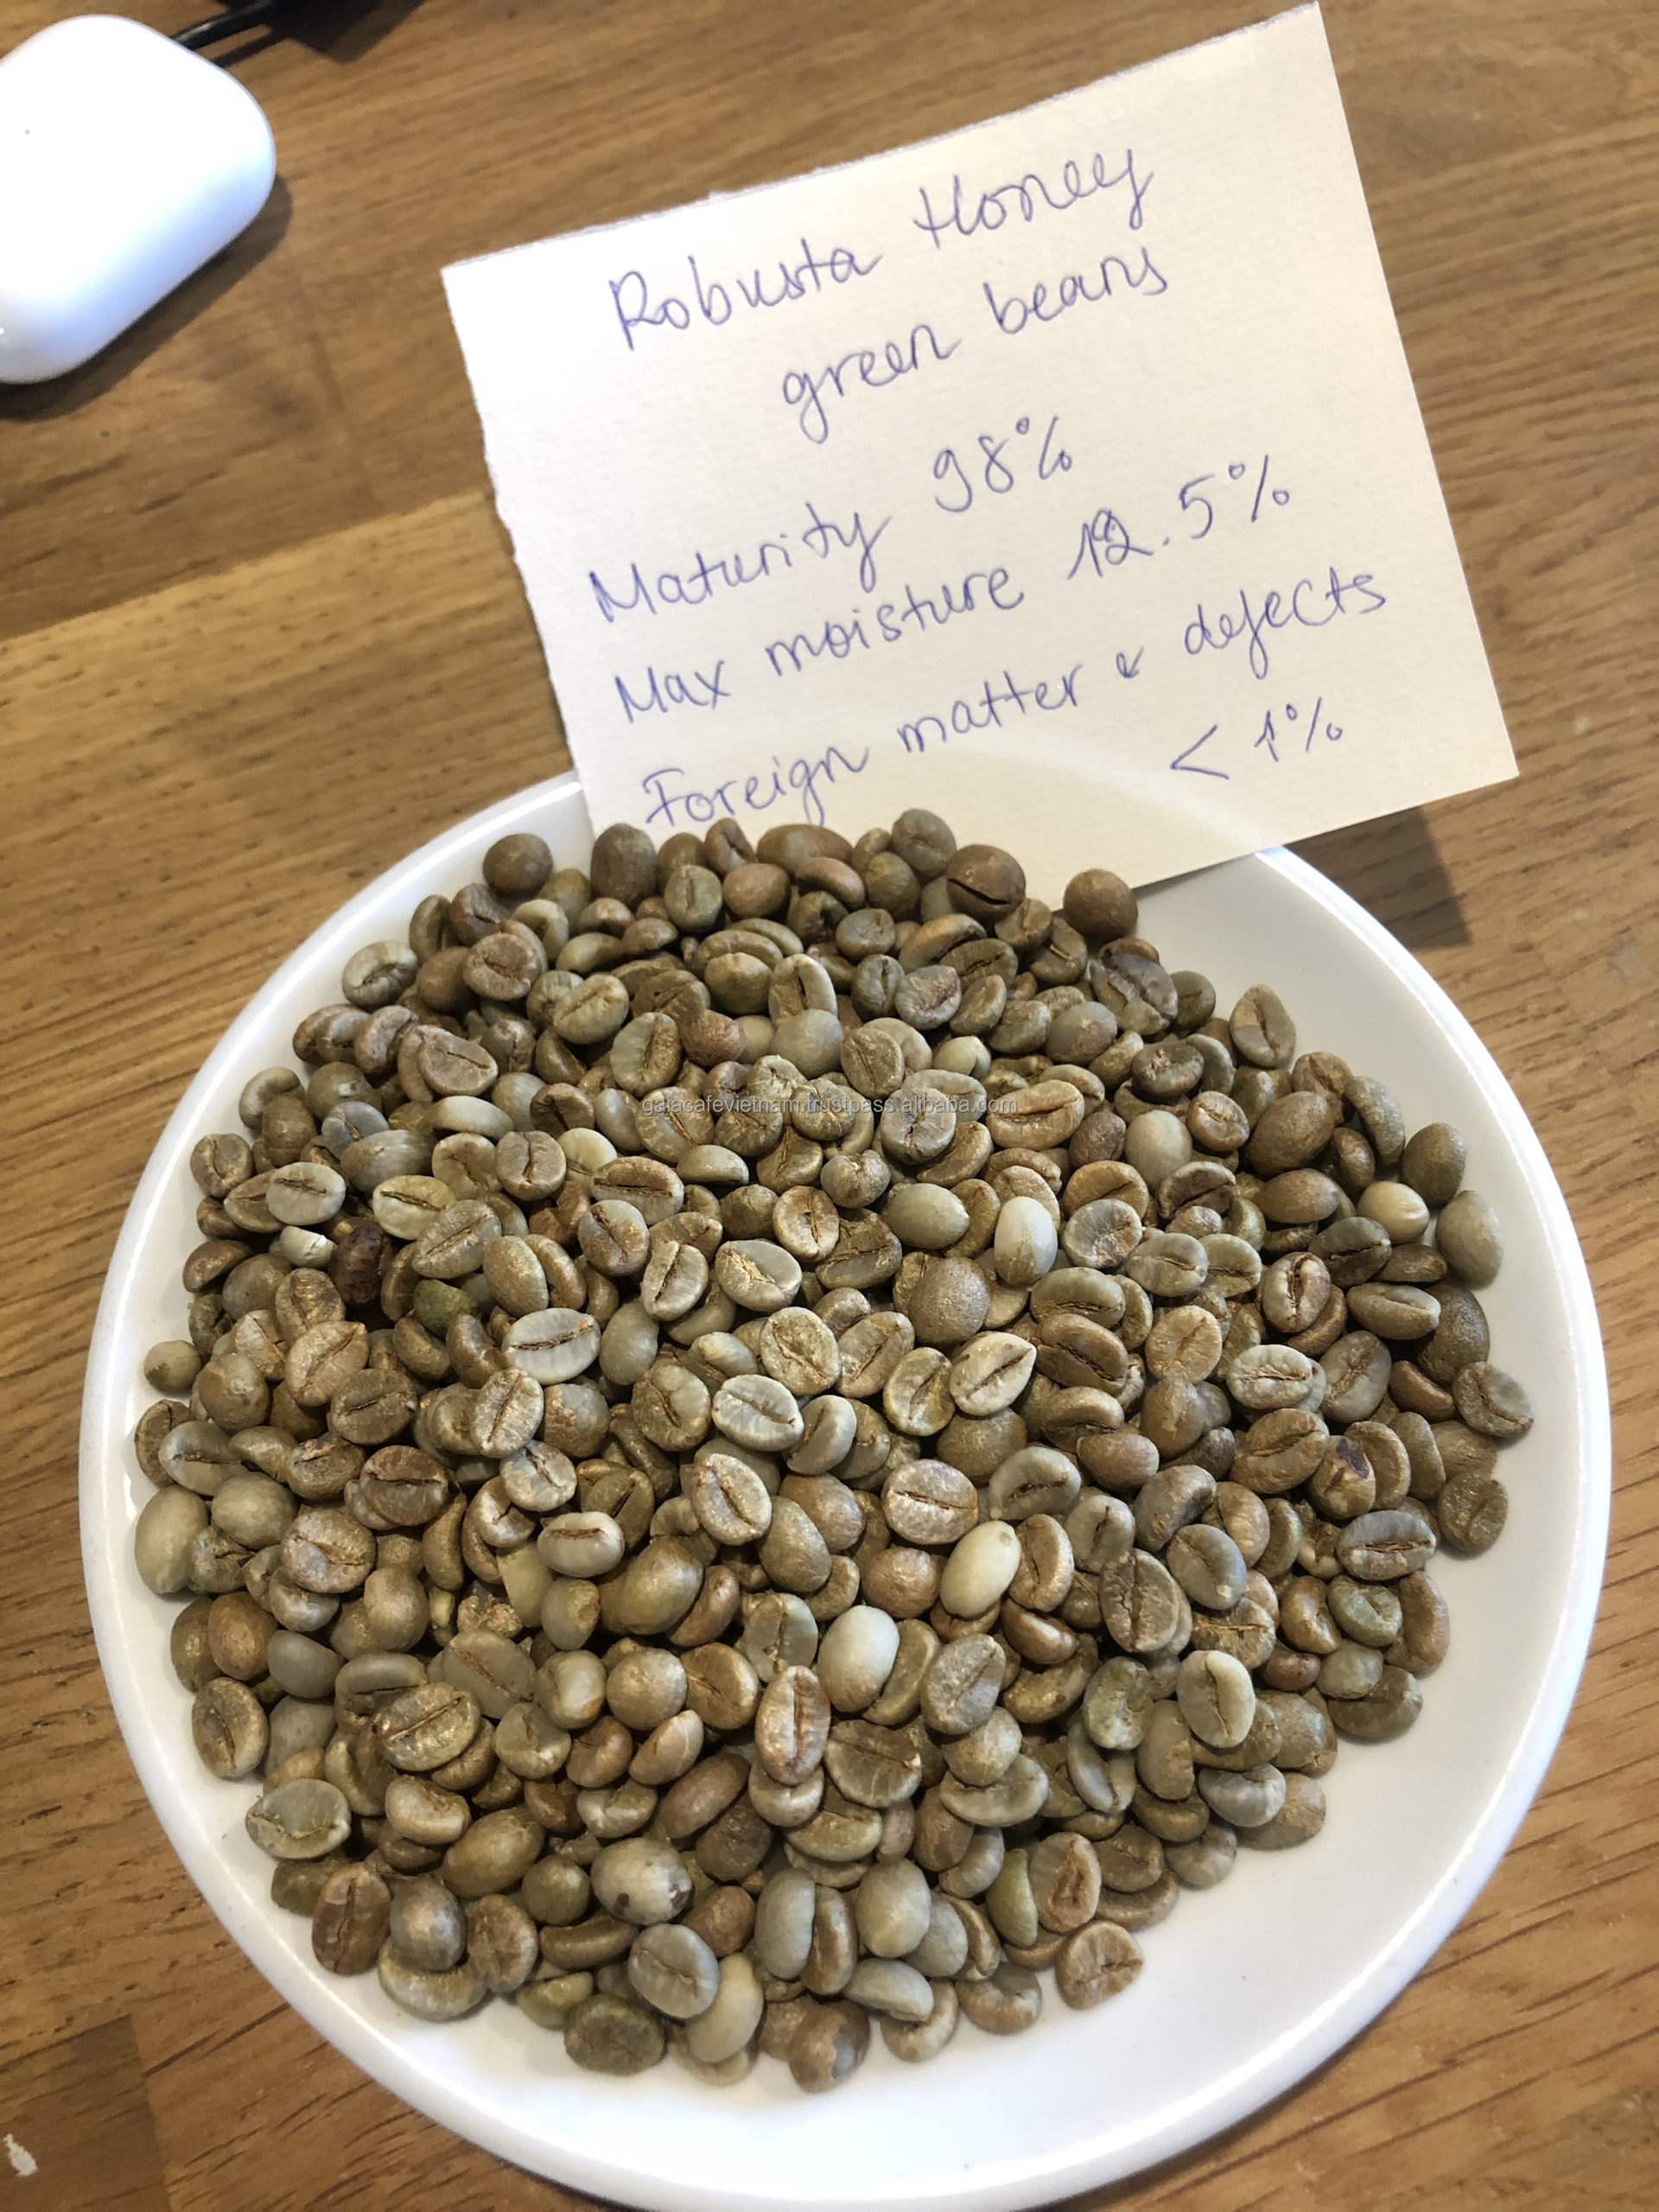 Robusta Honey
green beans
Maturity 98%
Max moisture 12.5%
Foreign matter & defects
< 1%
galacafevietnam.trustpass.alibaba.com